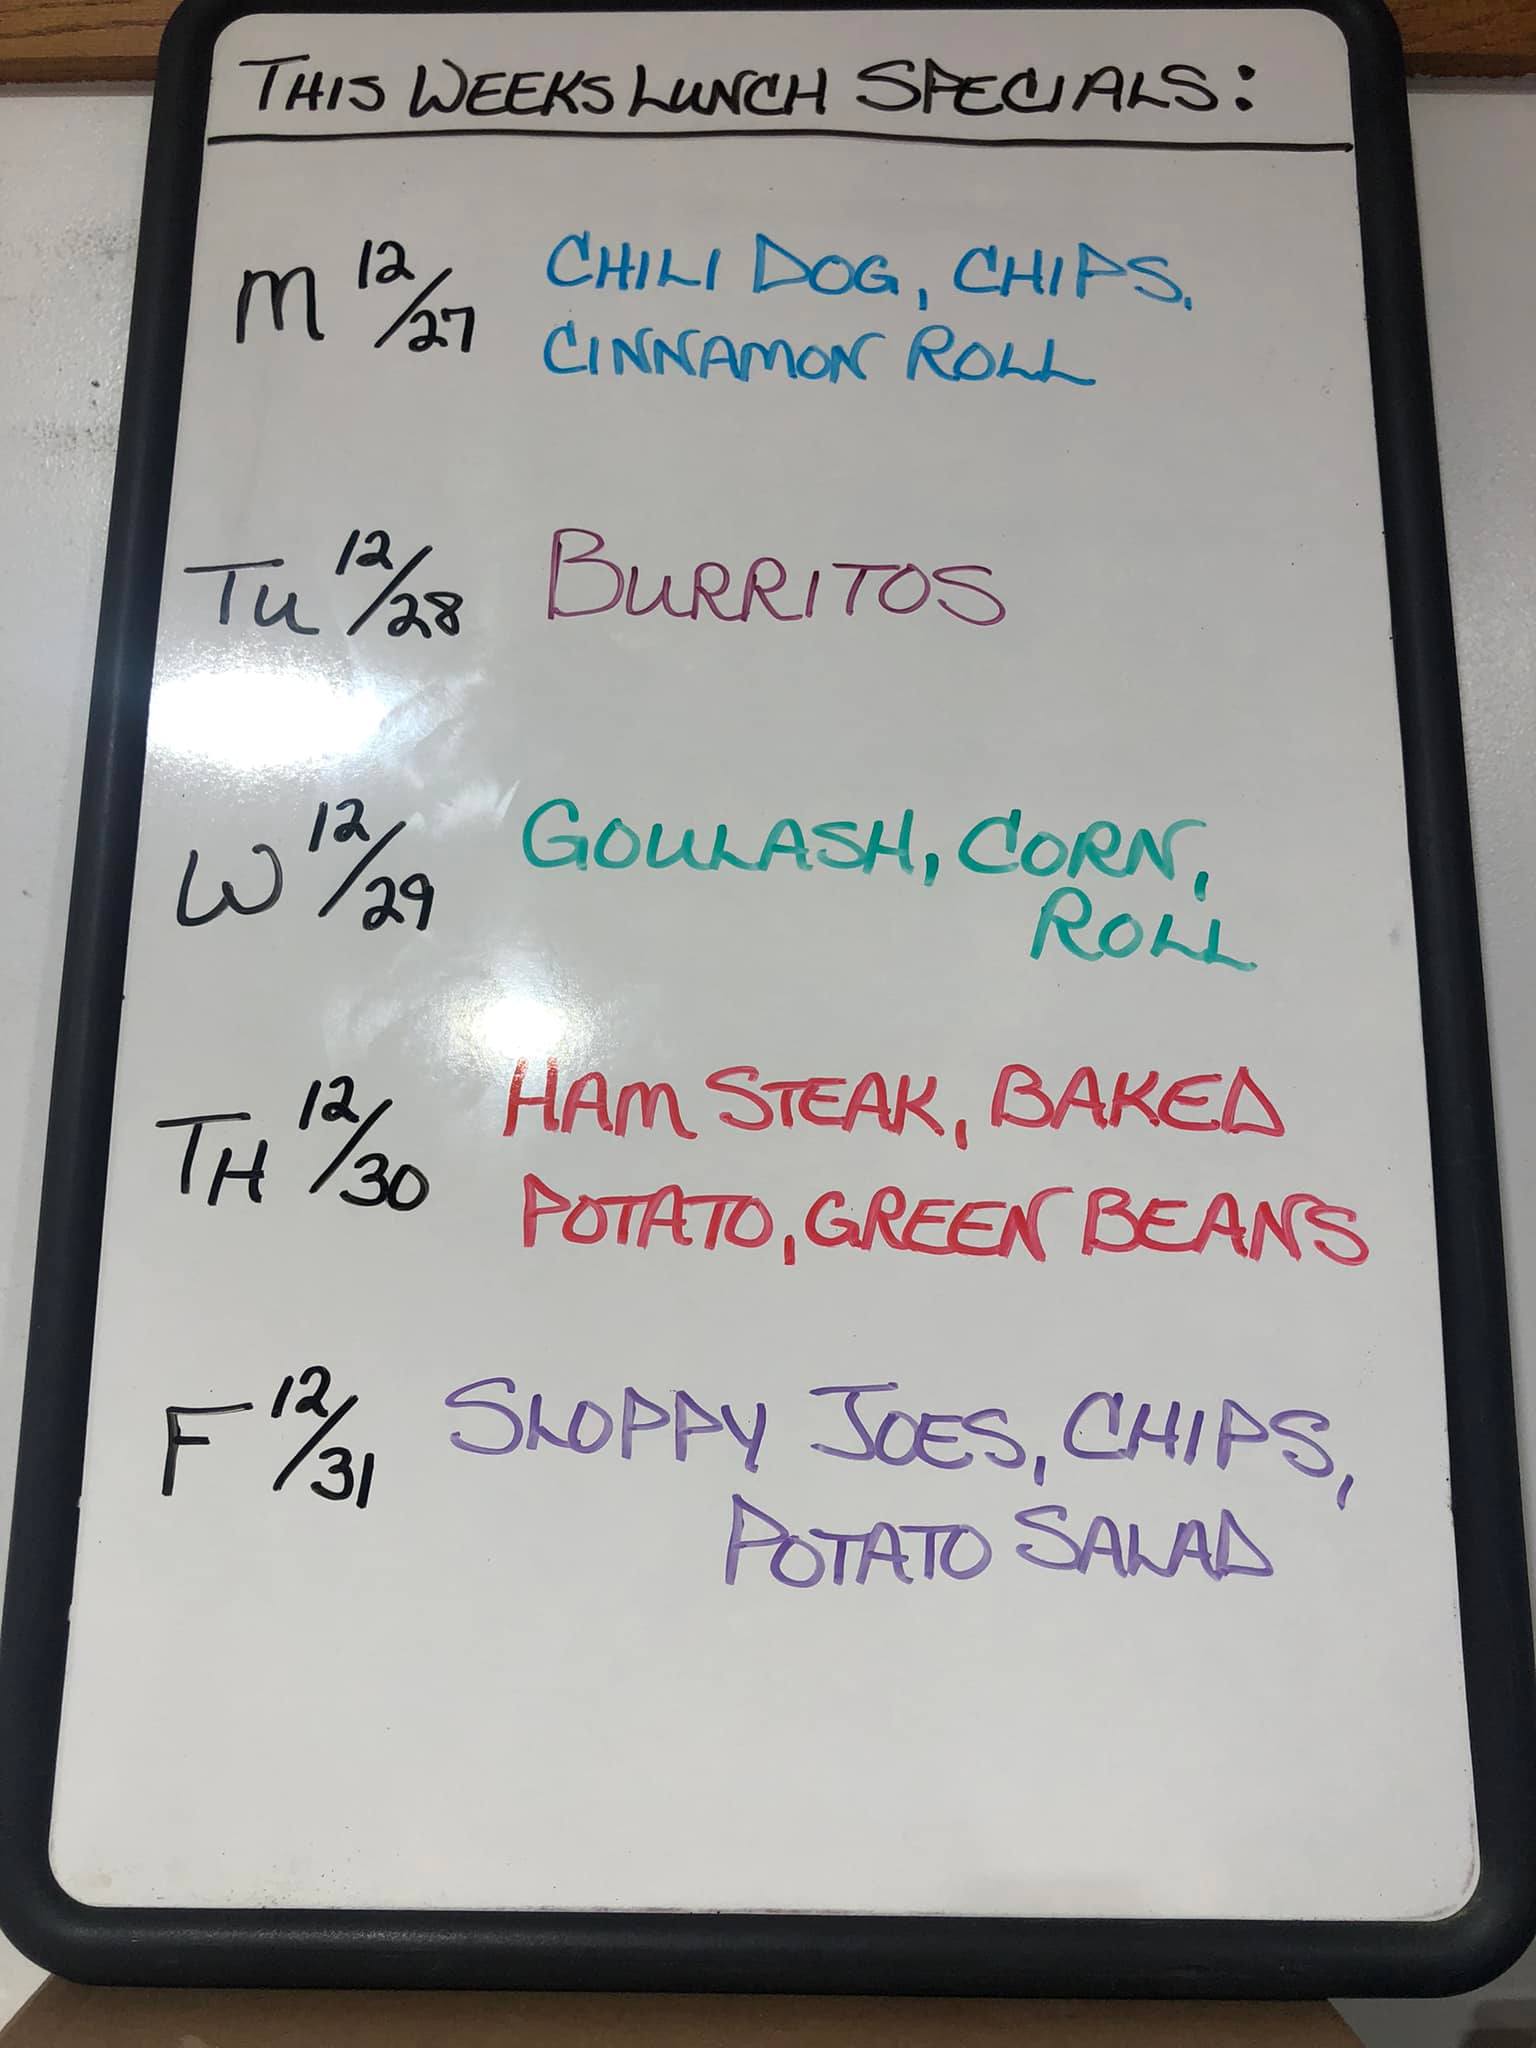 THIS WEEKS LUNCH SPECIALS:
M 12/27 CHILI DOG, CHIPS,
CINNAMON ROLL
TU 12/28 BURRITOS
W 12/29 GOULASH, CORN,
ROLL
TH 12/30 HAM STEAK, BAKED
POTATO, GREEN BEANS
F 12/31 SLOPPY JOES, CHIPS,
POTATO SALAD